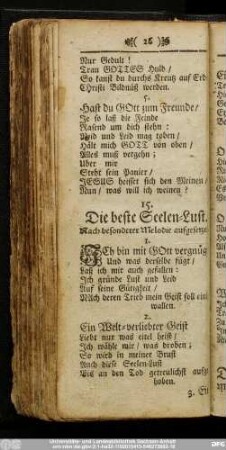 ( 26 )
Nur Gedult!
Trau GOTTES Huld/
So kanst du durchs Kreutz auf Erd
Christi Bildnüß werden.
5.
Hast du GOtt zum Freunde/
Je so laß die Feinde
Rasend um dich stehn:
Neid und Leid mag toben/
Hält mich GOTT von oben/
Alles muß vergehn;
Uber mir
Steht sein Panier/
JESUS heisset sich den Meinen/
Nun/ was will ich weinen?
15.
Die beste Seelen-Lust.
Nach besonderer Melodie aufgesetzt
1.
ICh bin mit GOtt vergnüg
Und was derselbe fügt/
Laß ich mir auch gefallen:
Ich gründe Lust und Leid
Auf seine Gütigkeit/
Nach deren Trieb mein Geist soll ein
wallen.
2.
Ein Welt-verliebter Geist
Liebt nur was eitel heist/
Ich wähle mir/ was droben;
So wird in meiner Brust
Nach diese Seelen-Lust
Biß an den Tod getreulichst aufg
hoben.
3.